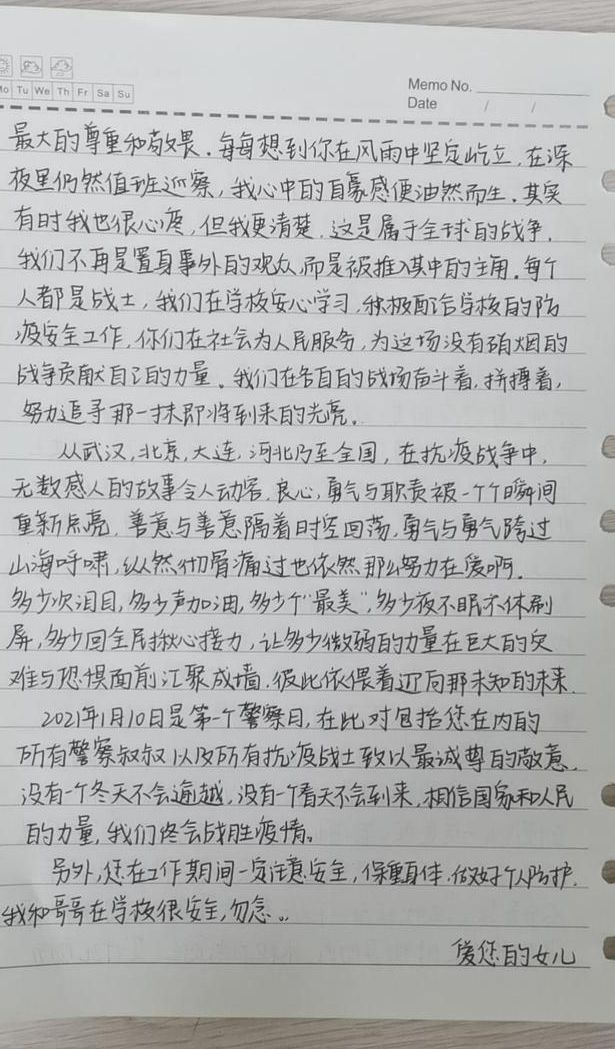 Mo Tu We Th Fr Sa Su
Memo No.
Date / /
最大的尊重和敬畏.每每想到你在风雨中坚定屹立,在深
夜里仍然值班巡察,我心中的自豪感便油然而生.其实
有时我也很心疼,但我更清楚,这是属于全球的战争,
我们不再是置身事外的观众,而是被推入其中的主角.每个
人都是战士,我们在学校安心学习,积极配合学校的防
疫安全工作,你们在社会为人民服务,为这场没有硝烟的
战争贡献自己的力量。我们在各自的战场奋斗着,拼搏着,
努力追寻那一抹即将到来的光亮.
从武汉,北京,大连,河北乃至全国,在抗疫战争中,
无数感人的故事令人动容,良心,勇气与职责被一个个瞬间
重新点亮,善意与善意隔着时空回荡,勇气与勇气跨过
山海呼啸,纵然彻骨痛过也依然那么努力在爱啊.
多少次泪目,多少声加油,多少个"最美",多少夜不眠不休刷
屏,多少回全民揪心接力,让多少微弱的力量在巨大的灾
难与恐惧面前汇聚成墙.彼此依偎着迈向那未知的未来.
2021年1月10日是第一个警察日,在此对包括您在内的
所有警察叔叔以及所有抗疫战士致以最诚尊的敬意.
没有一个冬天不会逾越,没有一个春天不会到来,相信国家和人民
的力量,我们终会战胜疫情。
另外,您在工作期间一定注意安全,保重身体.做好个人防护.
我和哥哥在学校很安全,勿念。.
爱您的女儿